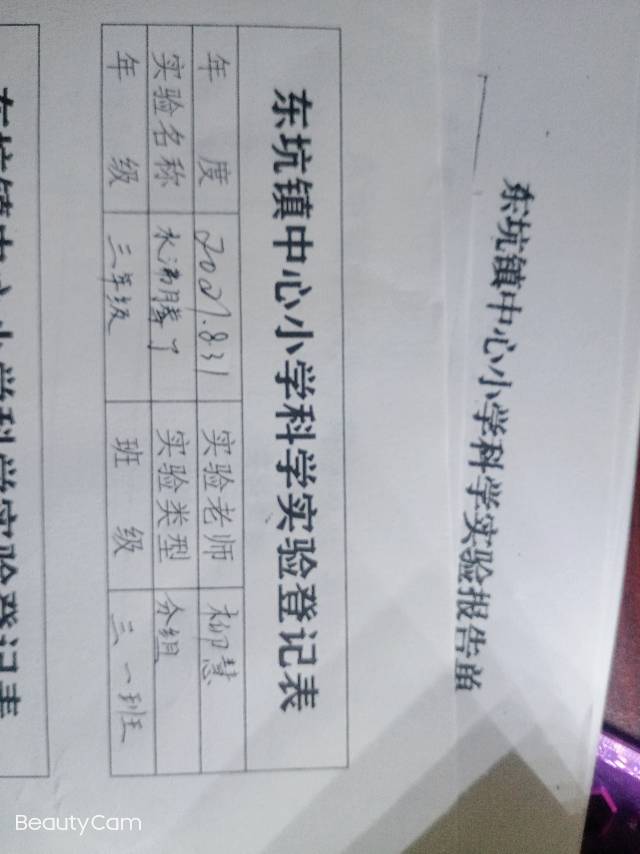 东坑镇中心小学科学实验报告单
东坑镇中心小学科学实验登记表
年 度 2021.8.31 实验老师 柳慧
实验名称 水沸腾了 实验类型 分组
年 级 三年级 班 级 三一班
东坑镇中心小学科学实验登记表
BeautyCam